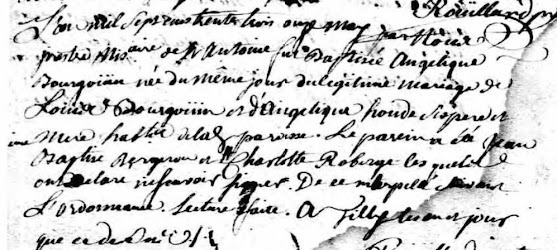 Rouillard ptre
L'an mil sept cens trente trois onze may par Nous
prestre Miss.aire de St Antoine fut Baptisé Angelique
Bourgoüin née du même jour du legitime mariage de
Louis Bourgoüin et d'Angelique houde ses pere et
Mere hab.ts de lad. paroisse. Le parein a été Jean
Baptiste Bergeron et Charlotte Roberge lesquels
ont declaré ne sçavoir signer. De ce interpelé suivant
L'ordonnance. Lecture faite. A Tilly les an et jour
que cy dessus